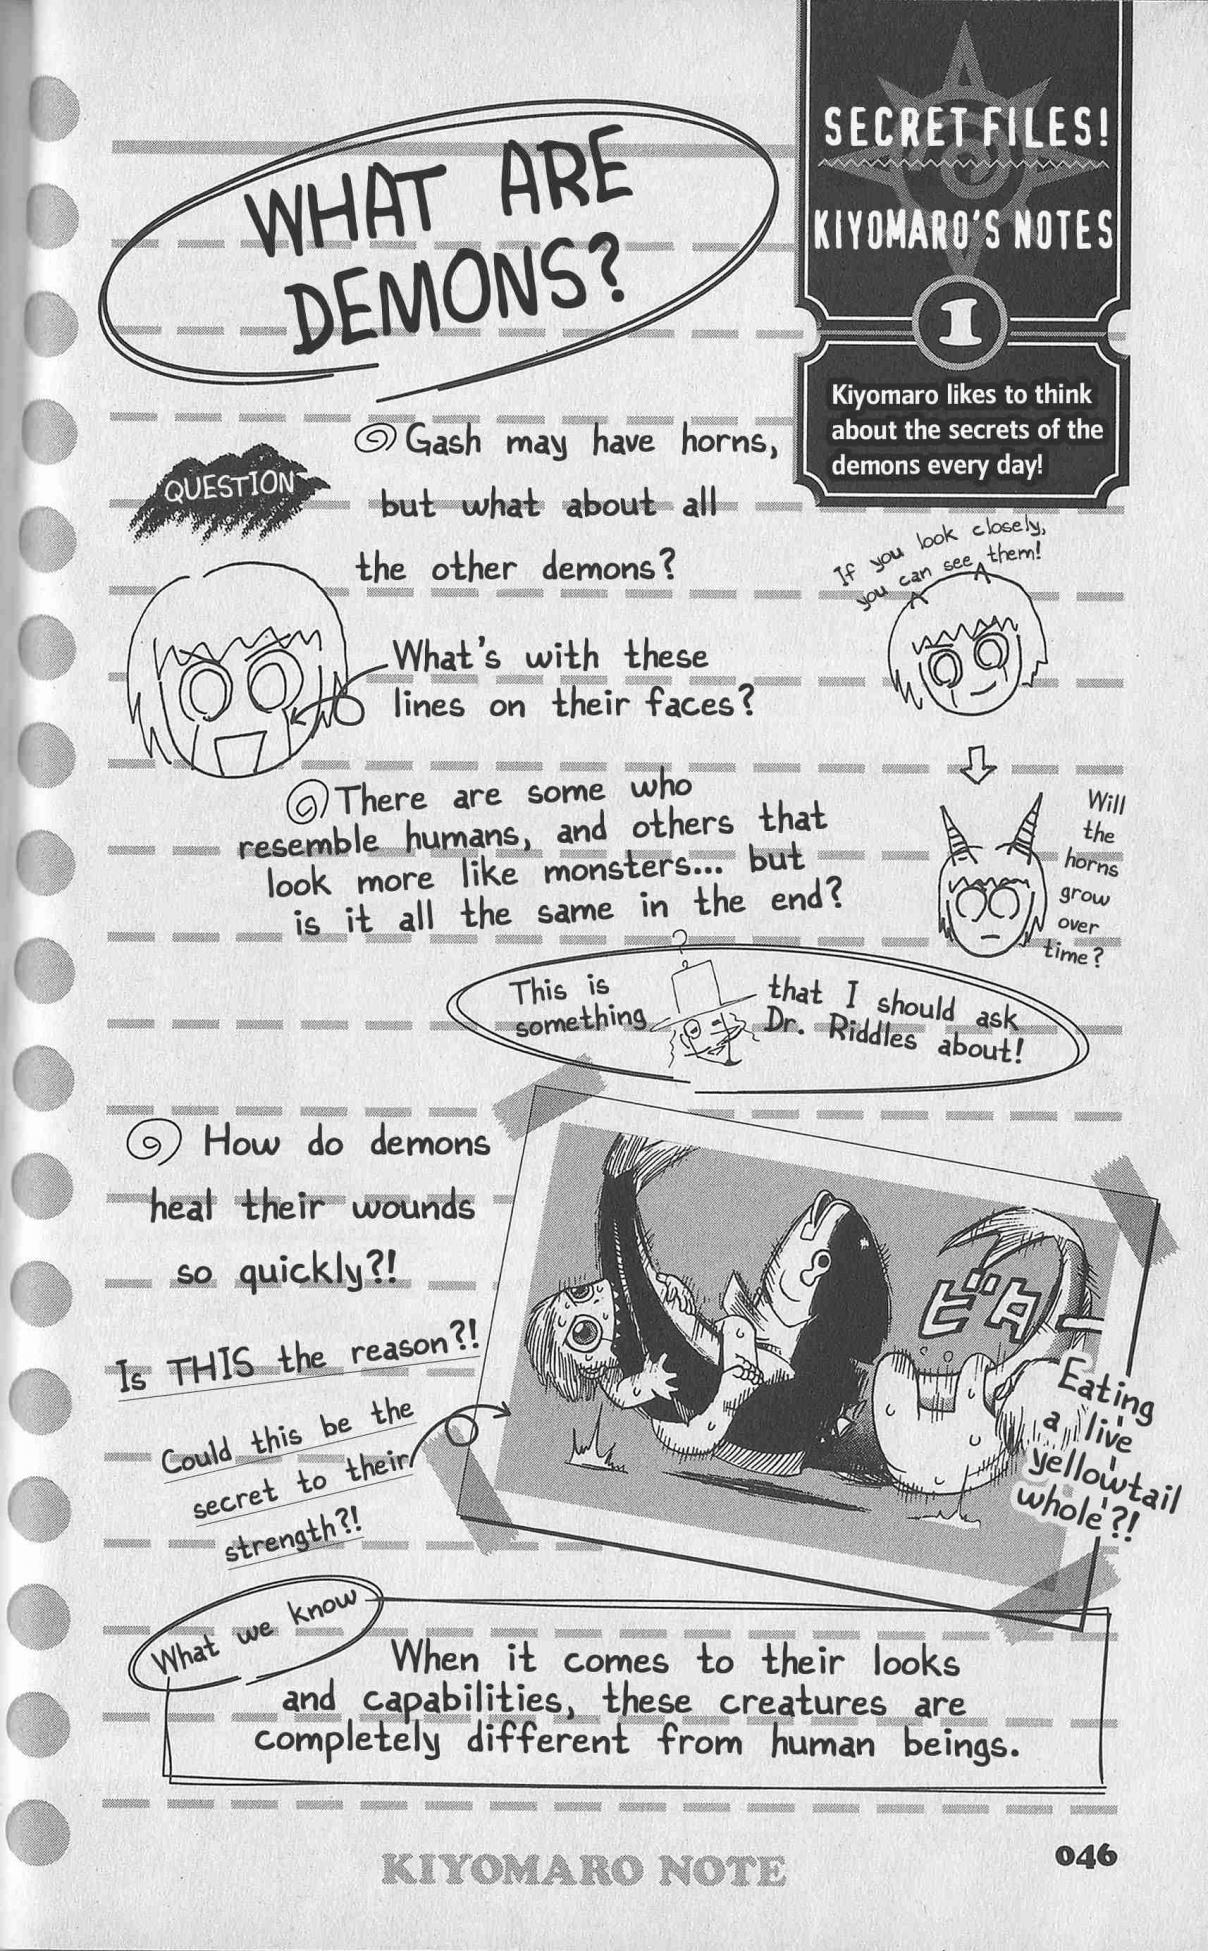 SECRET FILES!
KIYOMARO'S NOTES
1
Kiyomaro likes to think
about the secrets of the
demons every day!
WHAT ARE
DEMONS?
QUESTION
Gash may have horns,
but what about all
the other demons?
If you look closely,
you can see them!
What's with these
lines on their faces?
Will
the
horns
grow
over
time?
There are some who
resemble humans, and others that
look more like monsters... but
is it all the same in the end?
This is
something
that I should ask
Dr. Riddles about!
How do demons
heal their wounds
so quickly?!
Is THIS the reason?!
Could this be the
secret to their
strength?!
ビターー
Eating
a live
yellowtail
whole?!
What we know
When it comes to their looks
and capabilities, these creatures are
completely different from human beings.
KIYOMARO NOTE
046